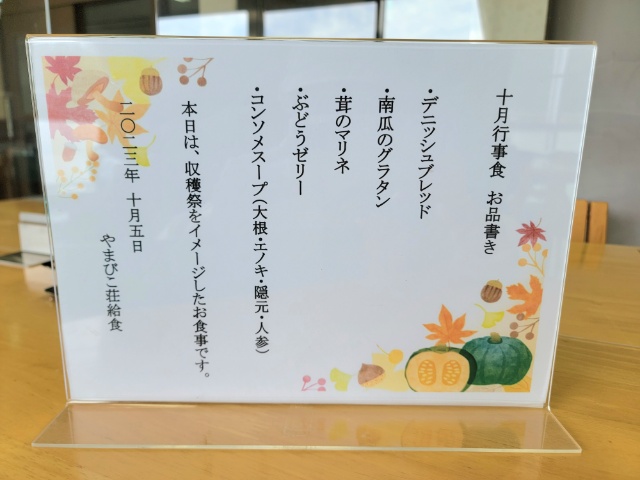 十月行事食　お品書き
・デニッシュブレッド
・南瓜のグラタン
・茸のマリネ
・ぶどうゼリー
・コンソメスープ（大根・エノキ・隠元・人参）
本日は、収穫祭をイメージしたお食事です。
二〇二三年　十月五日
やまびこ荘給食